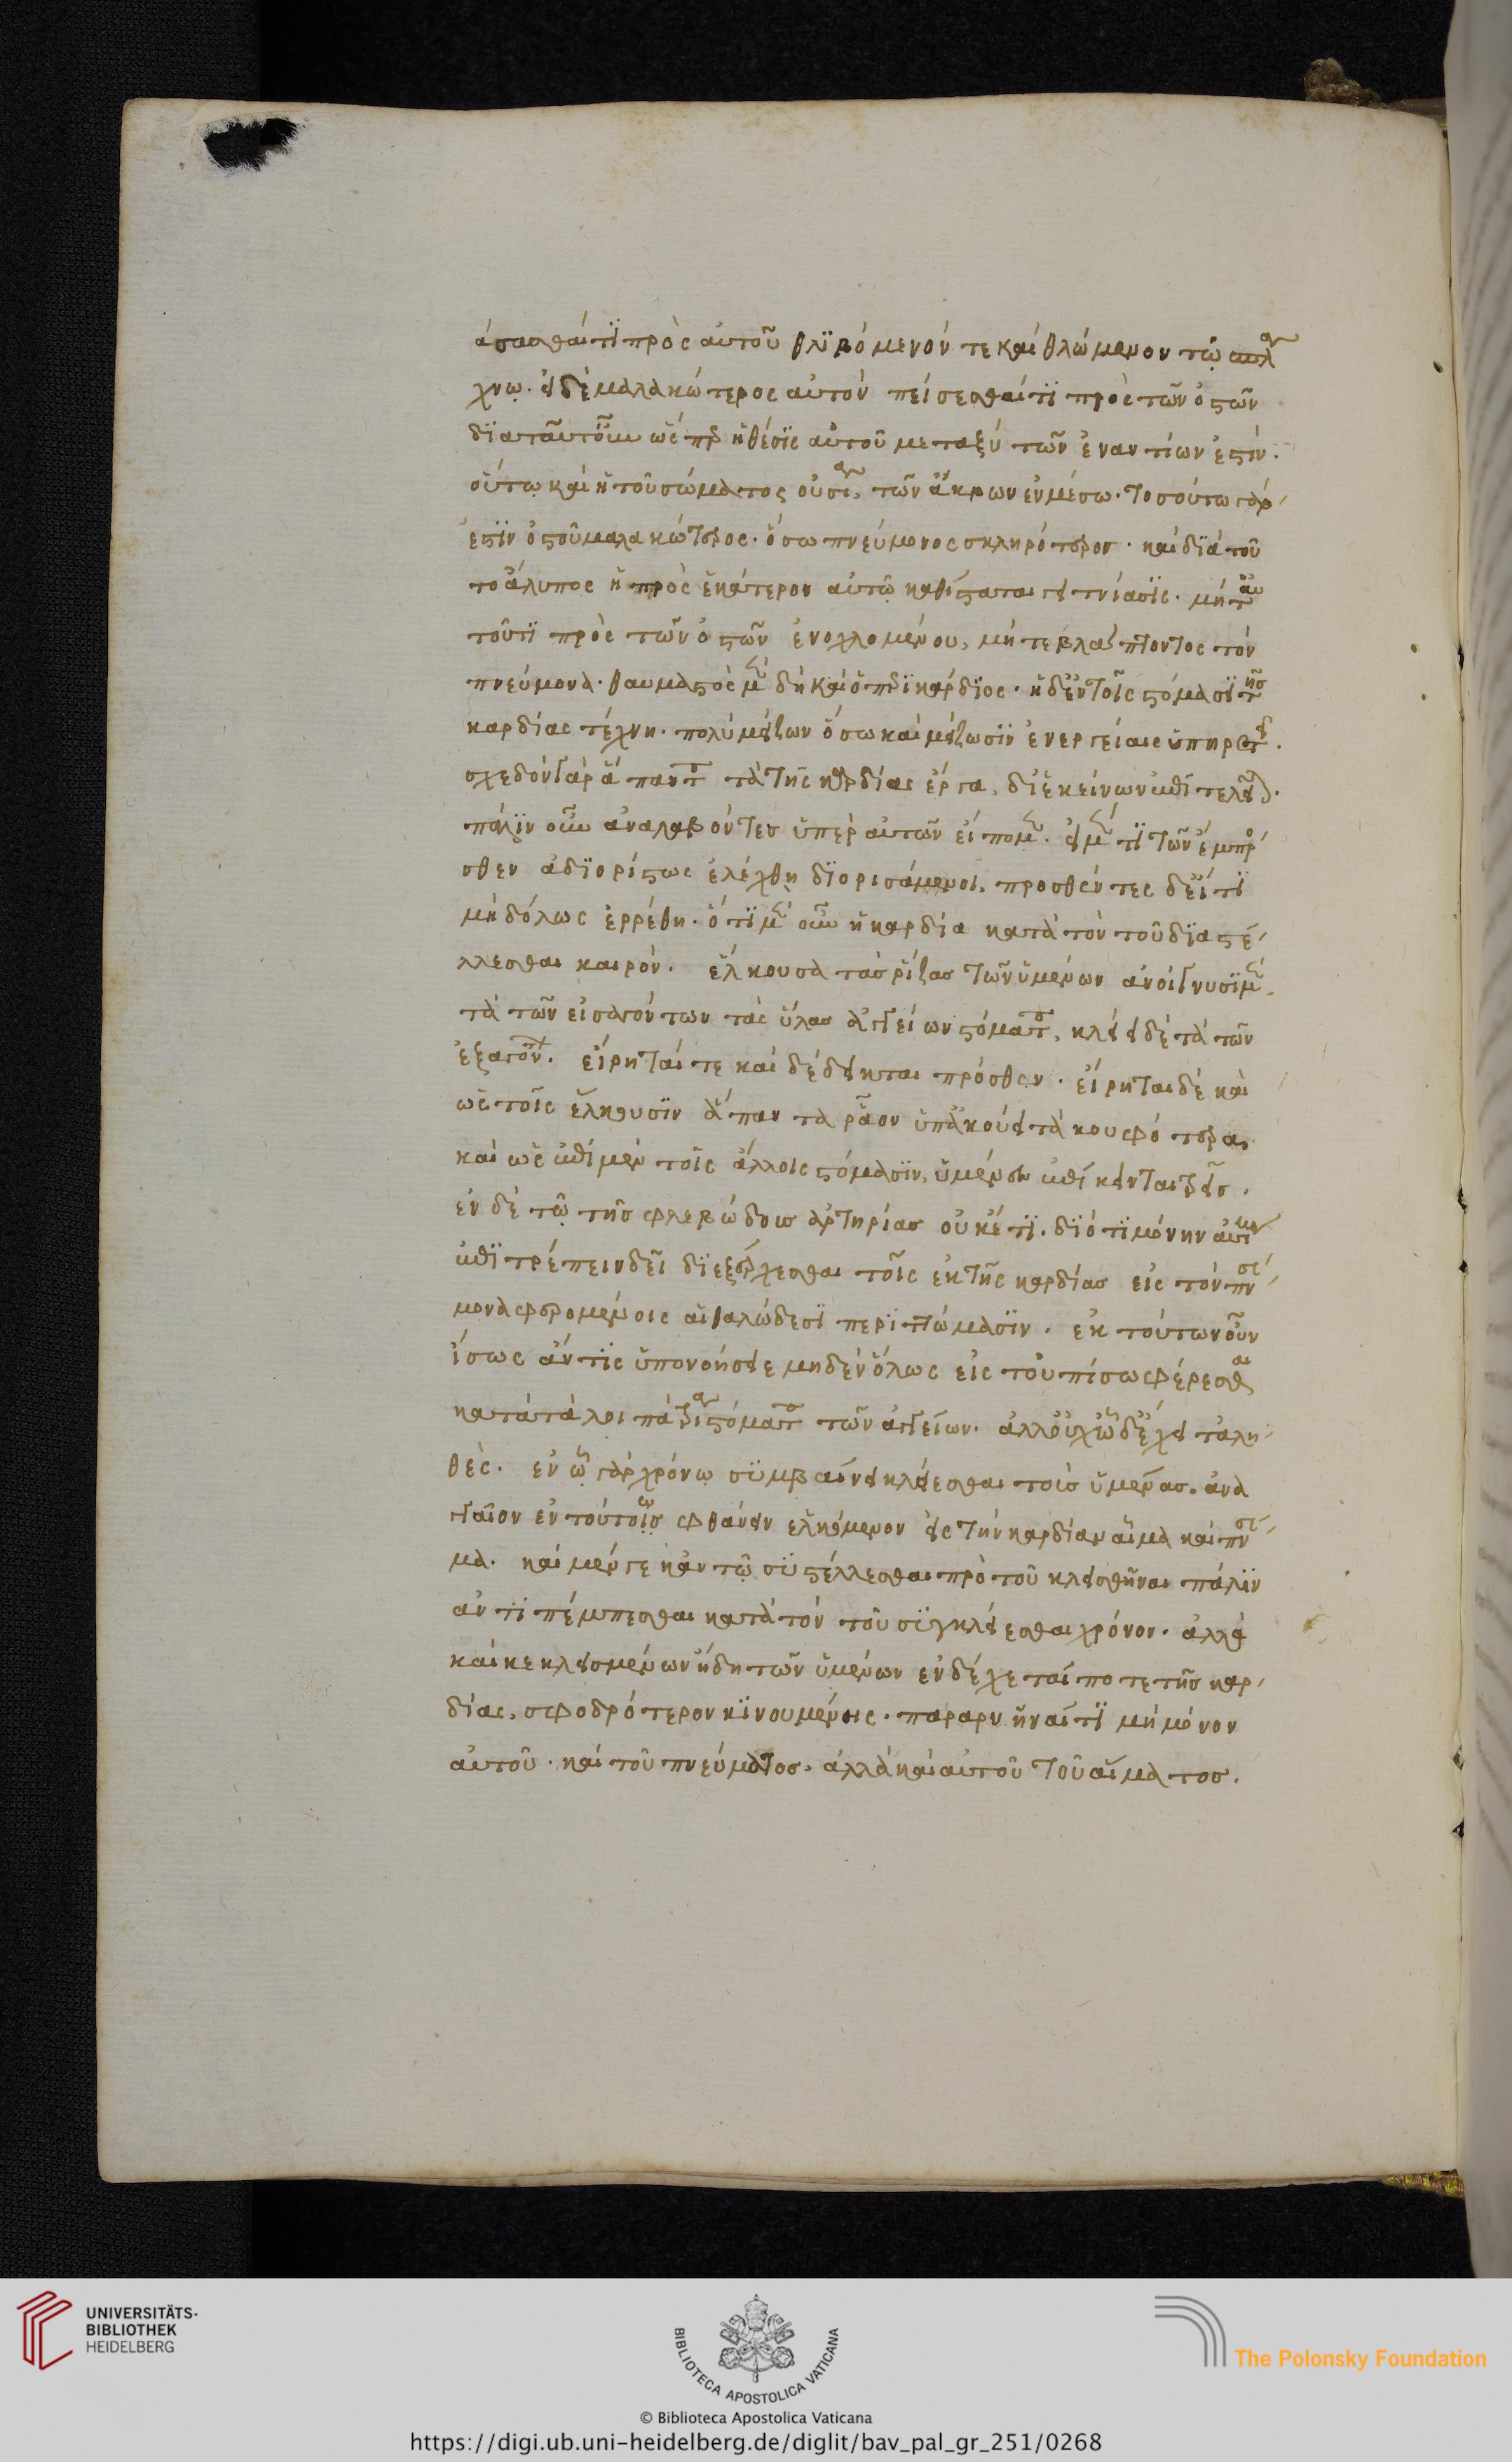 άσασθαί τι πρὸς αὐτοῦ θλιβόμενόν τε καὶ θλώμενον τῷ σπλά
χνῳ. εἰ δὲ μαλακώτερος αὐτὸν πείσεσθαί τι πρὸς τῶν ὀστῶν
διὰ ταῦτ' οὖν ὥσπερ ἡ θέσις αὐτοῦ μεταξὺ τῶν ἐναντίων ἐστίν.
οὕτω καὶ ἡ τοῦ σώματος οὐσία, τῶν ἄκρων ἐν μέσω. τοσούτω γάρ
ἐστιν ὀστοῦ μαλακώτερος. ὅσω πνεύμονος σκληρότερον. καὶ διὰ τοῦ
το ἄλυπος ἡ πρὸς ἑκάτερον αὐτῷ καθίσταται γειτνίασις. μήτ' αὐ
τοῦ τι πρὸς τῶν ὀστῶν ἐνοχλομένου, μήτε βλάπτοντος τὸν
πνεύμονα. θαυμαστὸς μὲν δὴ καὶ ὁ περικάρδιος. ἡ δ' ἐν τοῖς στόμασι τῆς
καρδίας τέχνη. πολὺ μείζων ὅσω καὶ μείζωσιν ἐνεργείαις ὑπηρετεῖ.
σχεδὸν γὰρ ἅπαντα τὰ τῆς καρδίας ἔργα, δι' ἐκείνων ἐπιτελεῖται.
πάλιν οὖν ἀναλαβόντες ὑπὲρ αὐτῶν εἴπομεν. εἰ μέν τι τῶν ἔμπρο
σθεν ἀδιορίστως ἐλέχθη διορισάμενοι, προσθέντες δ' εἴ τι
μηδόλως ἐρρέθη. ὅτι μὲν οὖν ἡ καρδία κατὰ τὸν τοῦ διαστέ
λλεσθαι καιρὸν. ἕλκουσα τὰς ῥίζας τῶν ὑμένων ἀνοίγνυσι μὲν
τὰ τῶν εἰσαγόντων τὰς ὕλας ἀγγείων στόματα, κλείει δὲ τὰ τῶν
ἐξαγόντων. εἴρηταί τε καὶ δέδεικται πρόσθεν. εἴρηται δὲ καὶ
ὡς τοῖς ἕλκουσιν ἅπαντα ρᾶον ὑπακούει τὰ κουφότερα,
καὶ ὡς ἐπὶ μὲν τοῖς ἄλλοις στόμασιν, ὑμένες ἐπίκεινται τρεῖς.
ἐν δὲ τῷ τῆς φλεβώδους ἀρτηρίας οὐκέτι. διότι μόνην αὐτὴν
ἐπιτρέπειν δεῖ διεξέρχεσθαι τοῖς ἐκ τῆς καρδίας εἰς τὸν πνεύ
μονα φερομένοις αἰθαλώδεσι περιττώμασιν. ἐκ τούτων οὖν
ἴσως ἄν τις ὑπονοήσειε μηδὲν ὅλως εἰς τοὐπίσω φέρεσθαι
κατὰ τὰ λοιπὰ τρία στόματα τῶν ἀγγείων. ἀλλ' οὐχ ὧδ' ἔχει τἀλη
θές. ἐν ᾧ γὰρ χρόνῳ συμβαίνει κλείεσθαι τοὺς ὑμένας. ἀνα
γκαῖον ἐν τούτῳ φθάνειν ἑλκόμενον εἰς τὴν καρδίαν αἷμα καὶ πνεῦ
μα. καὶ μέν γε κἀν τῷ συστέλλεσθαι πρὸ τοῦ κλεισθῆναι πάλιν
ἀντιπέμπεσθαι κατὰ τὸν τοῦ συγκλείεσθαι χρόνον. ἀλλὰ
καὶ κεκλεισμένων ἤδη τῶν ὑμένων ἐνδέχεταί ποτε τῆς καρ
δίας, σφοδρότερον κινουμένης. παραρυῆναί τι μὴ μόνον
αὐτοῦ. καὶ τοῦ πνεύματος. ἀλλὰ καὶ αὐτοῦ τοῦ αἵματος.
UNIVERSITÄTS-
BIBLIOTHEK
HEIDELBERG
BIBLIOTECA APOSTOLICA VATICANA
The Polonsky Foundation
© Biblioteca Apostolica Vaticana
https://digi.ub.uni-heidelberg.de/diglit/bav_pal_gr_251/0268